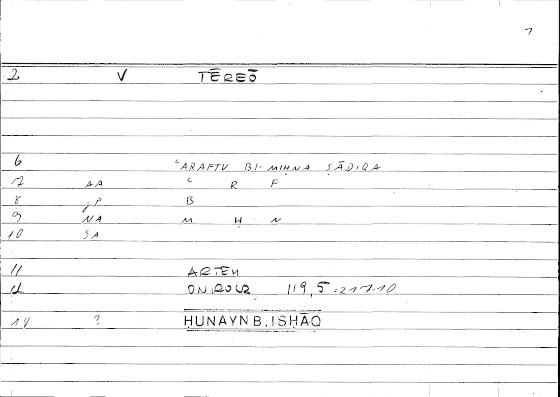 7
2 V TĒREŌ
6 ʿARAFTU BI-MIḤNA ṢĀDIQA
7 AA ʿ R F
8 P B
9 NA M Ḥ N
10 SA
11 ARTEM
12 ONIROCR 119,5 = 217.10
14 ? HUNAYN B. ISHĀQ